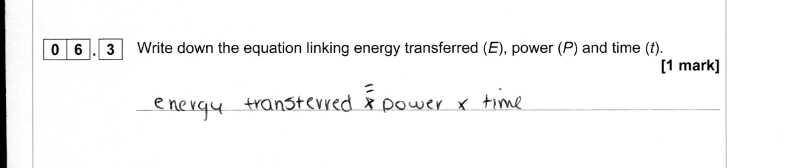 06.3 Write down the equation linking energy transferred (E), power (P) and time (t).
[1 mark]
energy transferred = power x time